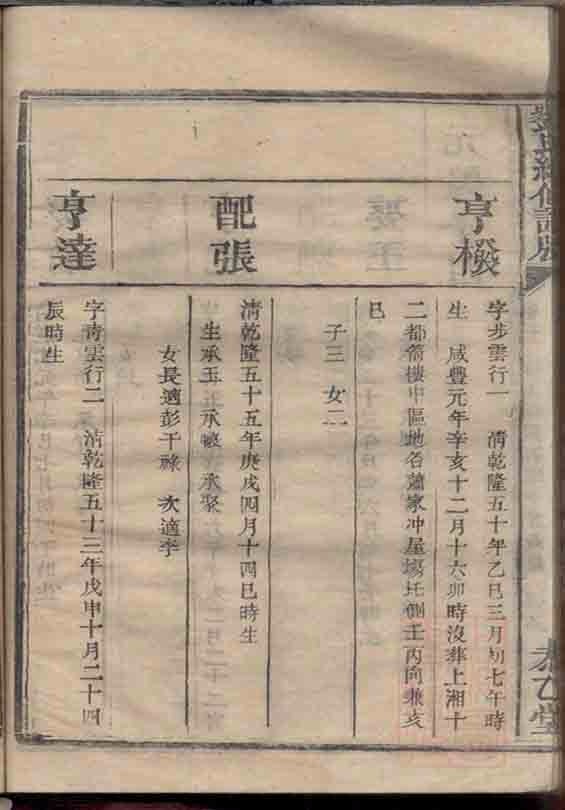 亨橃
字步雲行一 清乾隆五十年乙巳三月初七午時
生 咸豐元年辛亥十二月十六卯時沒葬上湘十
二都 樓中區地名蕭家冲屋塲 側壬丙向兼亥
巳
子三 女二
配張
清乾隆五十五年庚戌四月十四巳時生
生承玉 承 承聚
女長適彭干祿 次適李
亨達
字靑雲行二 清乾隆五十三年戊申十月二十四
辰時生
氏續修譜
乙堂